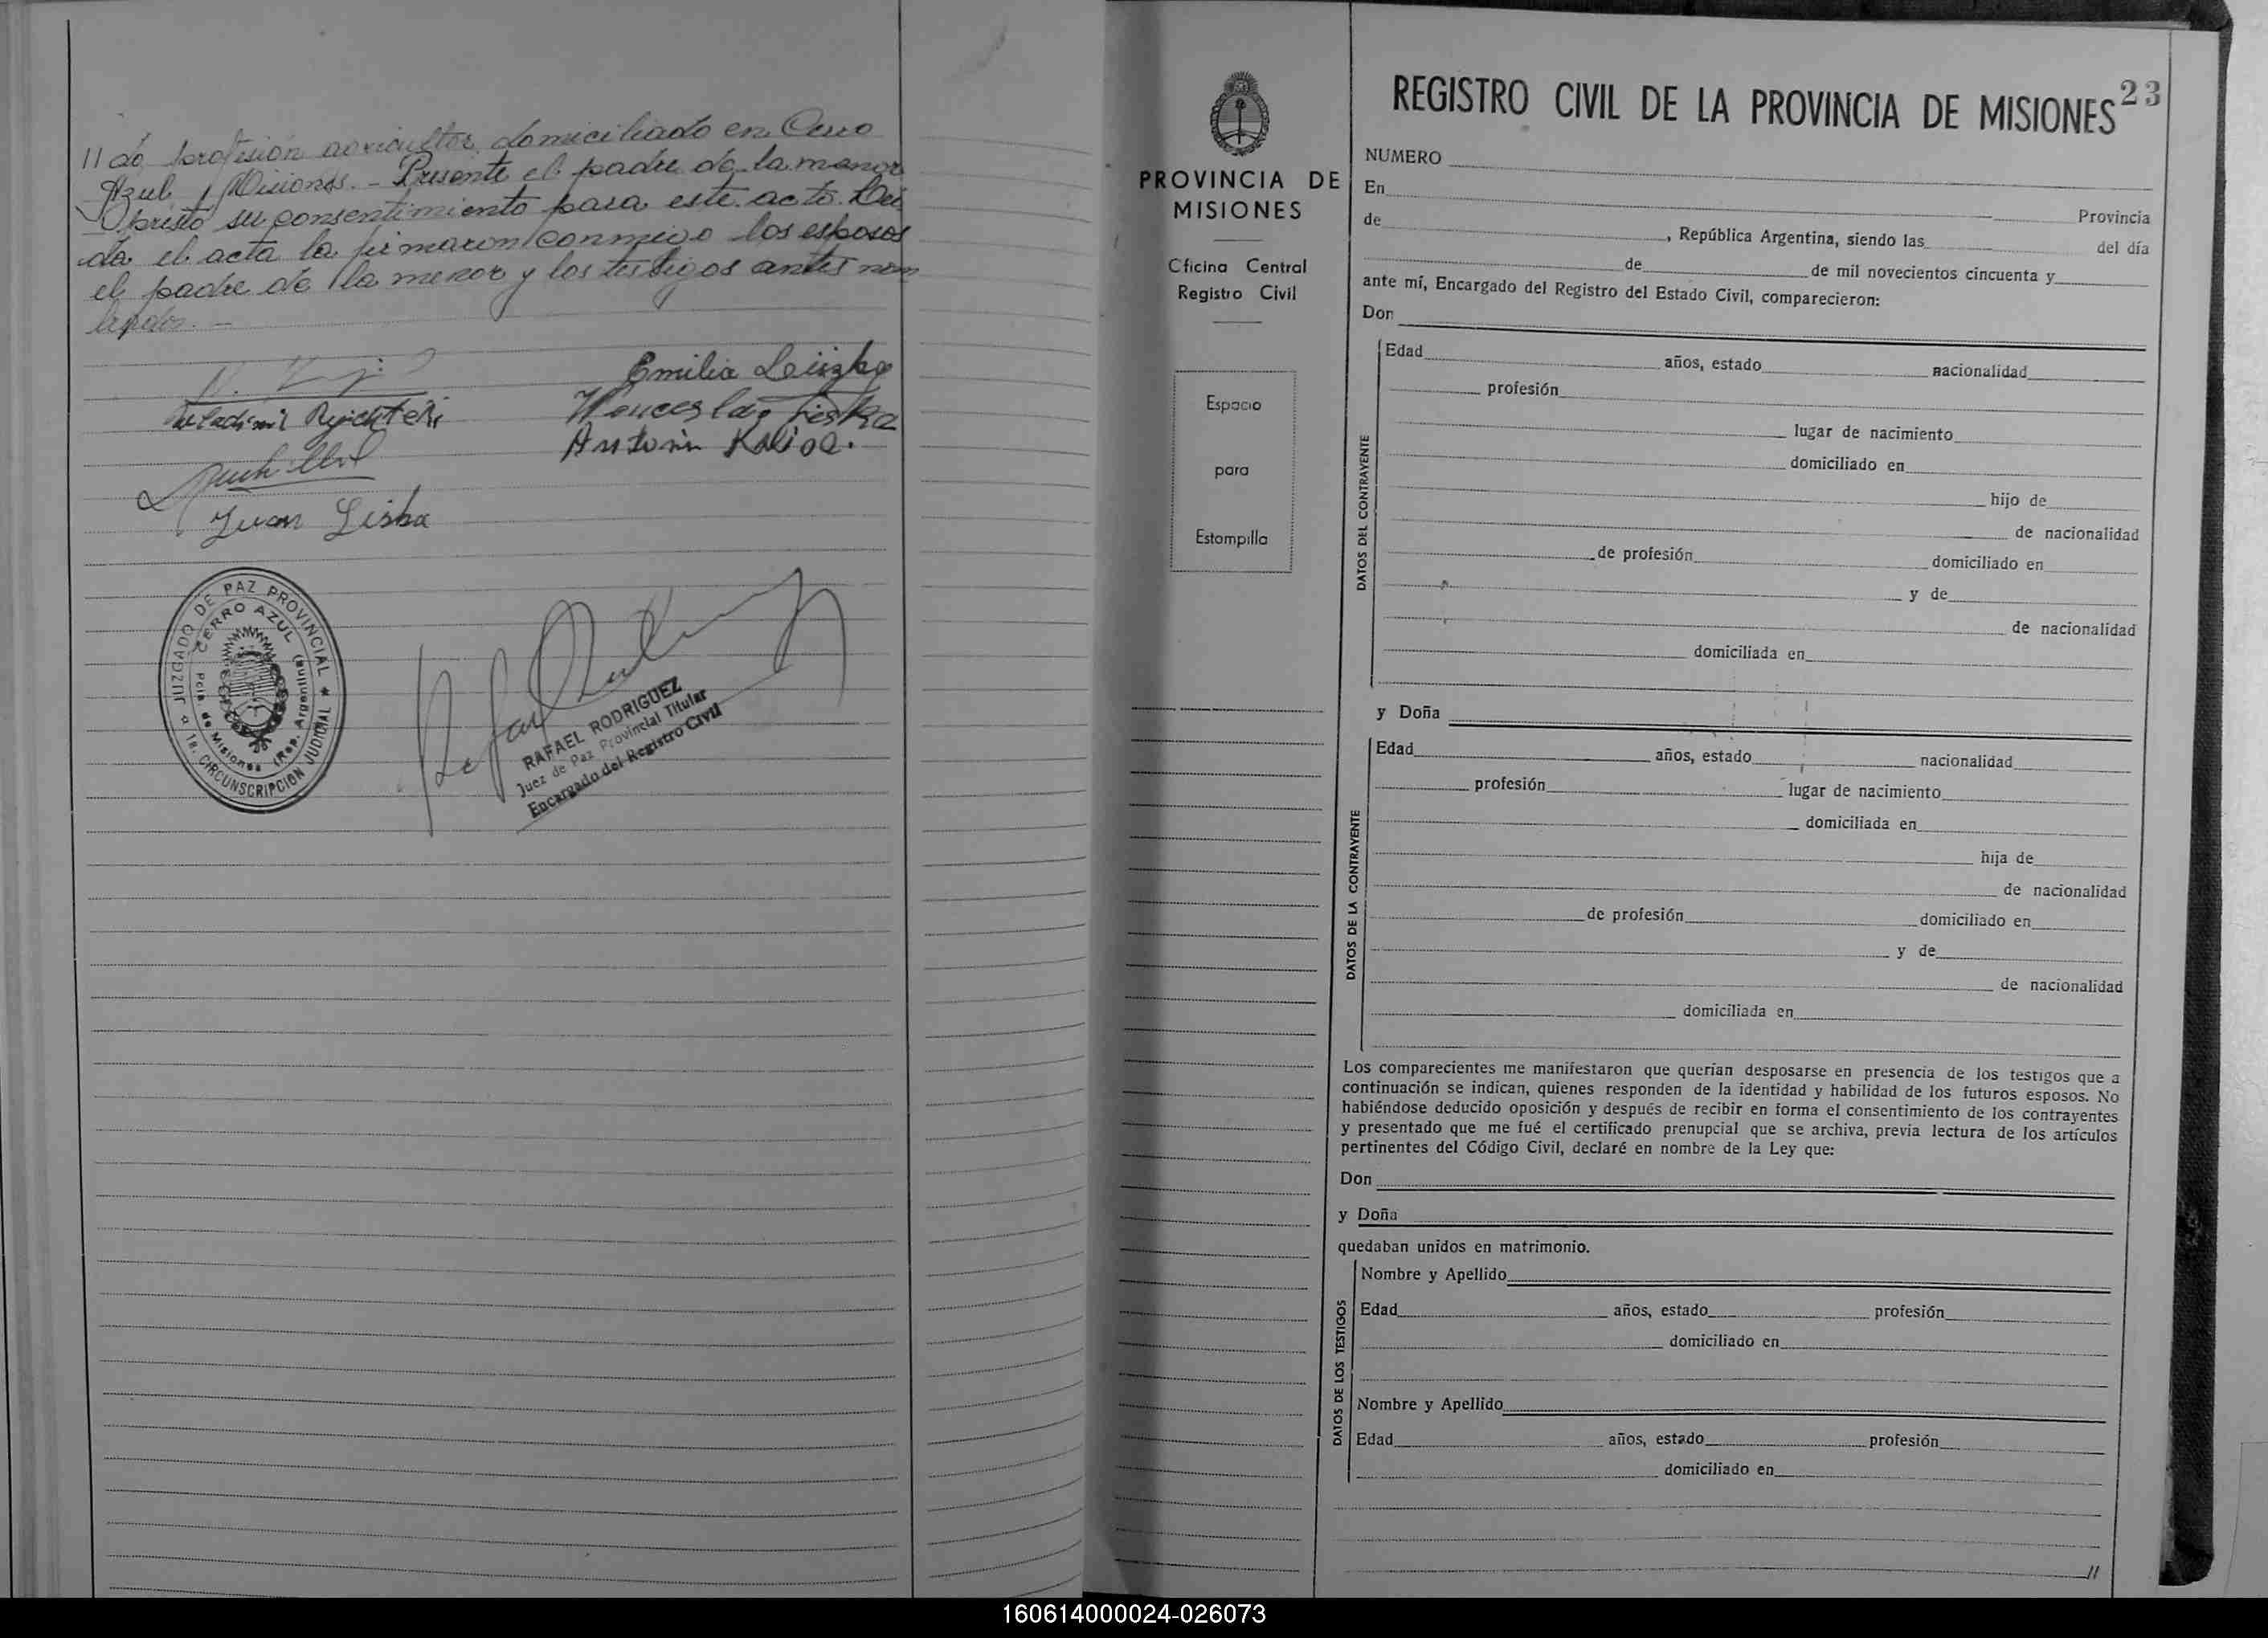 11 do profesión agricultor, domiciliado en Cerro
Azul, Misiones. - Presente el padre de la menor
prestó su consentimiento para este acto. Leí
da el acta la firmaron conmigo los esposos
el padre de la menor y los testigos antes nom
brados. -
Emilia Leiszka
Wladimil Rychteki
Wenceslao Liska
Antonin Kalina.
Juan Liska
JUZGADO DE PAZ PROVINCIAL
CERRO AZUL
Pcia. de Misiones (Rep. Argentina)
1a. CIRCUNSCRIPCION JUDICIAL
RAFAEL RODRIGUEZ
Juez de Paz Provincial Titular
Encargado del Registro Civil
PROVINCIA DE
MISIONES
Oficina Central
Registro Civil
Espacio
para
Estampilla
REGISTRO CIVIL DE LA PROVINCIA DE MISIONES 23
NUMERO
En
Provincia
de , República Argentina, siendo las del día
de de mil novecientos cincuenta y
ante mí, Encargado del Registro del Estado Civil, comparecieron:
Don
DATOS DEL CONTRAYENTE
Edad años, estado nacionalidad
profesión
lugar de nacimiento
domiciliado en
hijo de
de nacionalidad
de profesión domiciliado en
y de
de nacionalidad
domiciliada en
y Doña
DATOS DE LA CONTRAYENTE
Edad años, estado nacionalidad
profesión lugar de nacimiento
domiciliada en
hija de
de nacionalidad
de profesión domiciliado en
y de
de nacionalidad
domiciliada en
Los comparecientes me manifestaron que querían desposarse en presencia de los testigos que a
continuación se indican, quienes responden de la identidad y habilidad de los futuros esposos. No
habiéndose deducido oposición y después de recibir en forma el consentimiento de los contrayentes
y presentado que me fué el certificado prenupcial que se archiva, previa lectura de los artículos
pertinentes del Código Civil, declaré en nombre de la Ley que:
Don
y Doña
quedaban unidos en matrimonio.
DATOS DE LOS TESTIGOS
Nombre y Apellido
Edad años, estado profesión
domiciliado en
Nombre y Apellido
Edad años, estado profesión
domiciliado en
//
160614000024-026073